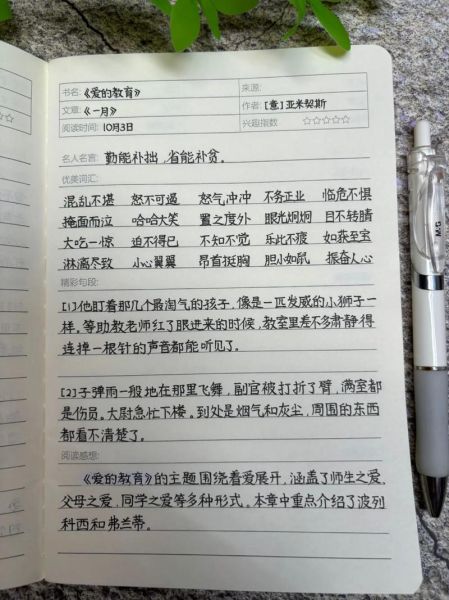 书名:《爱的教育》 来源:
文章:《一月》 作者:[意]亚米契斯
阅读时间: 10月3日 兴趣指数 ☆☆☆☆☆
名人名言: 勤能补拙,省能补贫。
优美词汇:
混乱不堪 怒不可遏 怒气冲冲 不务正业 临危不惧
掩面而泣 哈哈大笑 置之度外 眼光炯炯 目不转睛
大吃一惊 迫不得已 不知不觉 乐此不疲 如获至宝
淋漓尽致 小心翼翼 昂首挺胸 胆小如鼠 振奋人心
精彩句段:
[1]他盯着那几个最淘气的孩子,像是一匹发威的小狮子一
样。等助教老师红了眼进来的时候,教室里差不多肃静得
连掉一根针的声音都能听见了。
[2]子弹雨一般地在那里飞舞,副官被打折了臂,满室都
是伤员。大尉急忙下楼。到处是烟气和灰尘,周围的东西
都看不清楚了。
阅读感想:
《爱的教育》的主题围绕着爱展开,涵盖了师生之爱、
父母之爱、同学之爱等多种形式。本章中重点介绍了波列
科西和弗兰蒂。
M&G